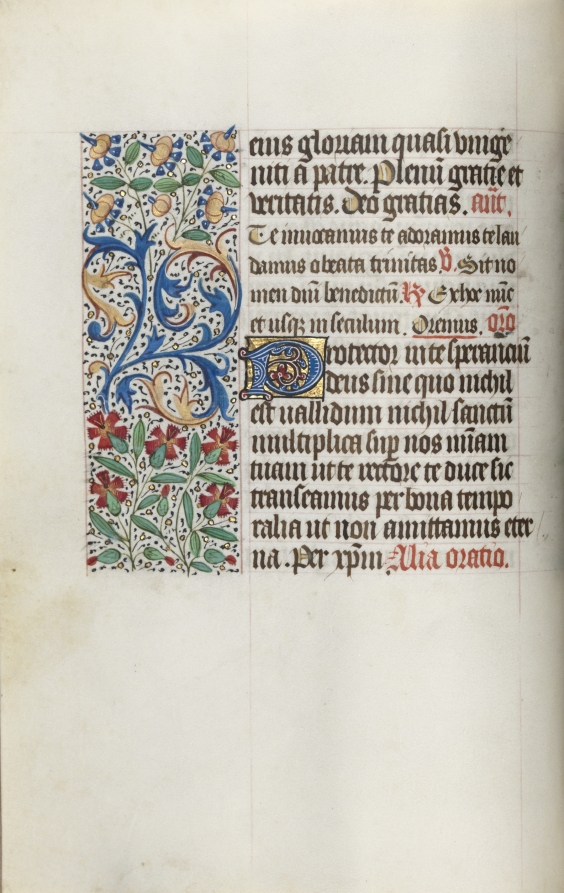 eius gloriam quasi vnige
niti a patre. Plenū gratie et
veritatis. Deo gratias. añt.
Te inuocamus te adoramus te lau
damus o beata trinitas ℣. Sit no
men dñi benedictū. ℟ Ex hoc nūc
et usqȝ in seculum. Oremus. oro
Protector in te sperancium
deus sine quo nichil
est uallidum nichil sanctū
multiplica suꝑ nos miãm
tuam ut te rectore te duce sic
transeamus per bona tempo
ralia ut non amittamus eter
na. Per xp̄m Alia oratio.